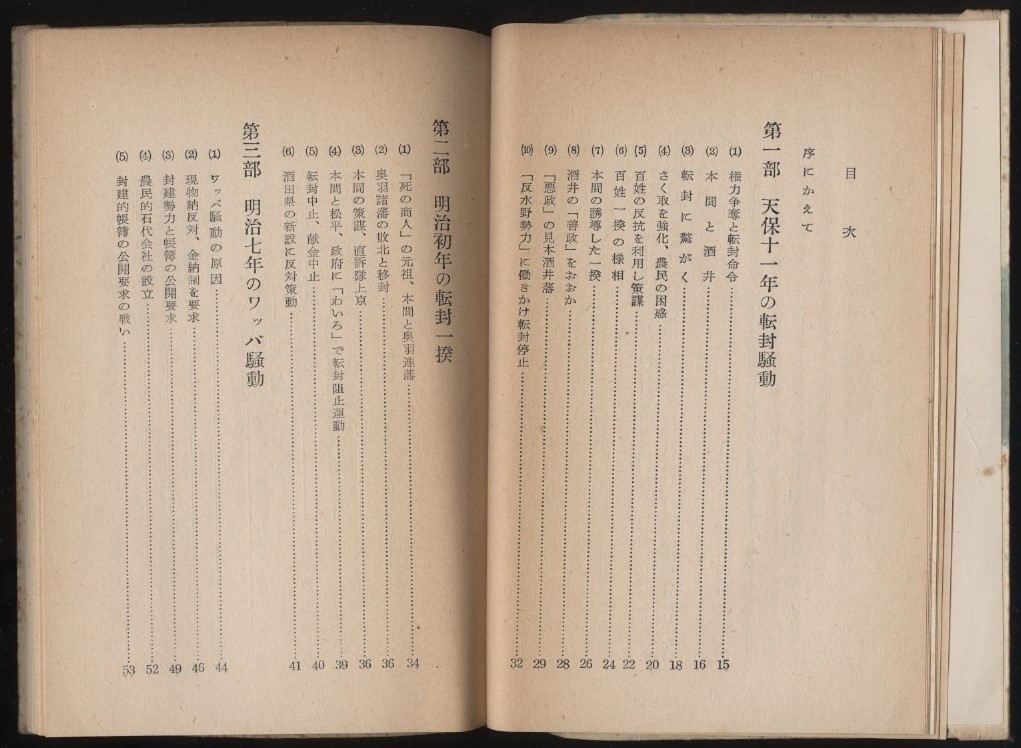 目次
序にかえて
第一部 天保十一年の転封騒動
(1) 権力争奪と転封命令……15
(2) 本間と酒井……16
(3) 転封に驚がく……18
(4) さく取を強化、農民の困惑……20
(5) 百姓の反抗を利用し策謀……22
(6) 百姓一揆の様相……24
(7) 本間の誘導した一揆……26
(8) 酒井の「善政」をおおか……28
(9) 「悪政」の見本酒井藩……29
(10) 「反水野勢力」に働きかけ転封停止……32
第二部 明治初年の転封一揆
(1) 「死の商人」の元祖、本間と奥羽連藩……34
(2) 奥羽諸藩の敗北と移封……36
(3) 本間の策謀、直訴隊上京……36
(4) 本間と松平、政府に「わいろ」で転封阻止運動……39
(5) 転封中止、献金中止……40
(6) 酒田県の新設に反対策動……41
第三部 明治七年のワッパ騒動
(1) ワッパ騒動の原因……44
(2) 現物納反対、金納制を要求……46
(3) 封建勢力と帳簿の公開要求……49
(4) 農民的石代会社の設立……52
(5) 封建的帳簿の公開要求の戦い……53